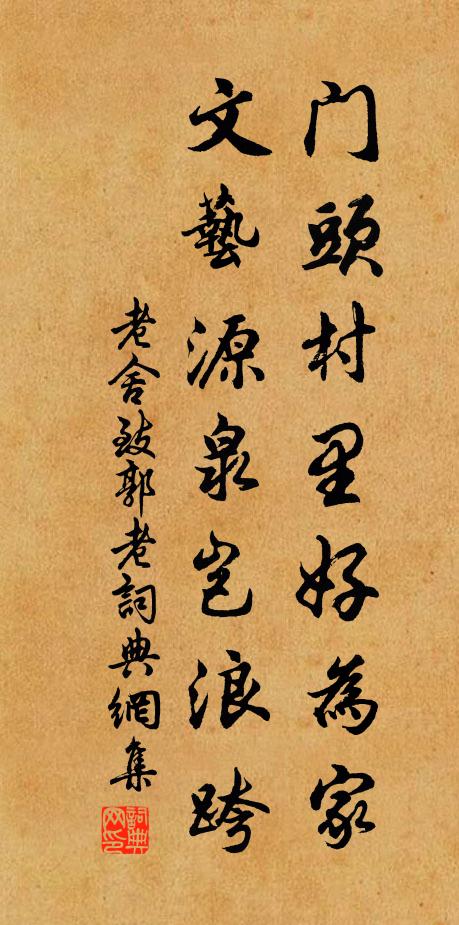 门头村里好为家
文艺源泉岂浪跨
老舍致郭老詞典網集
詞典网印